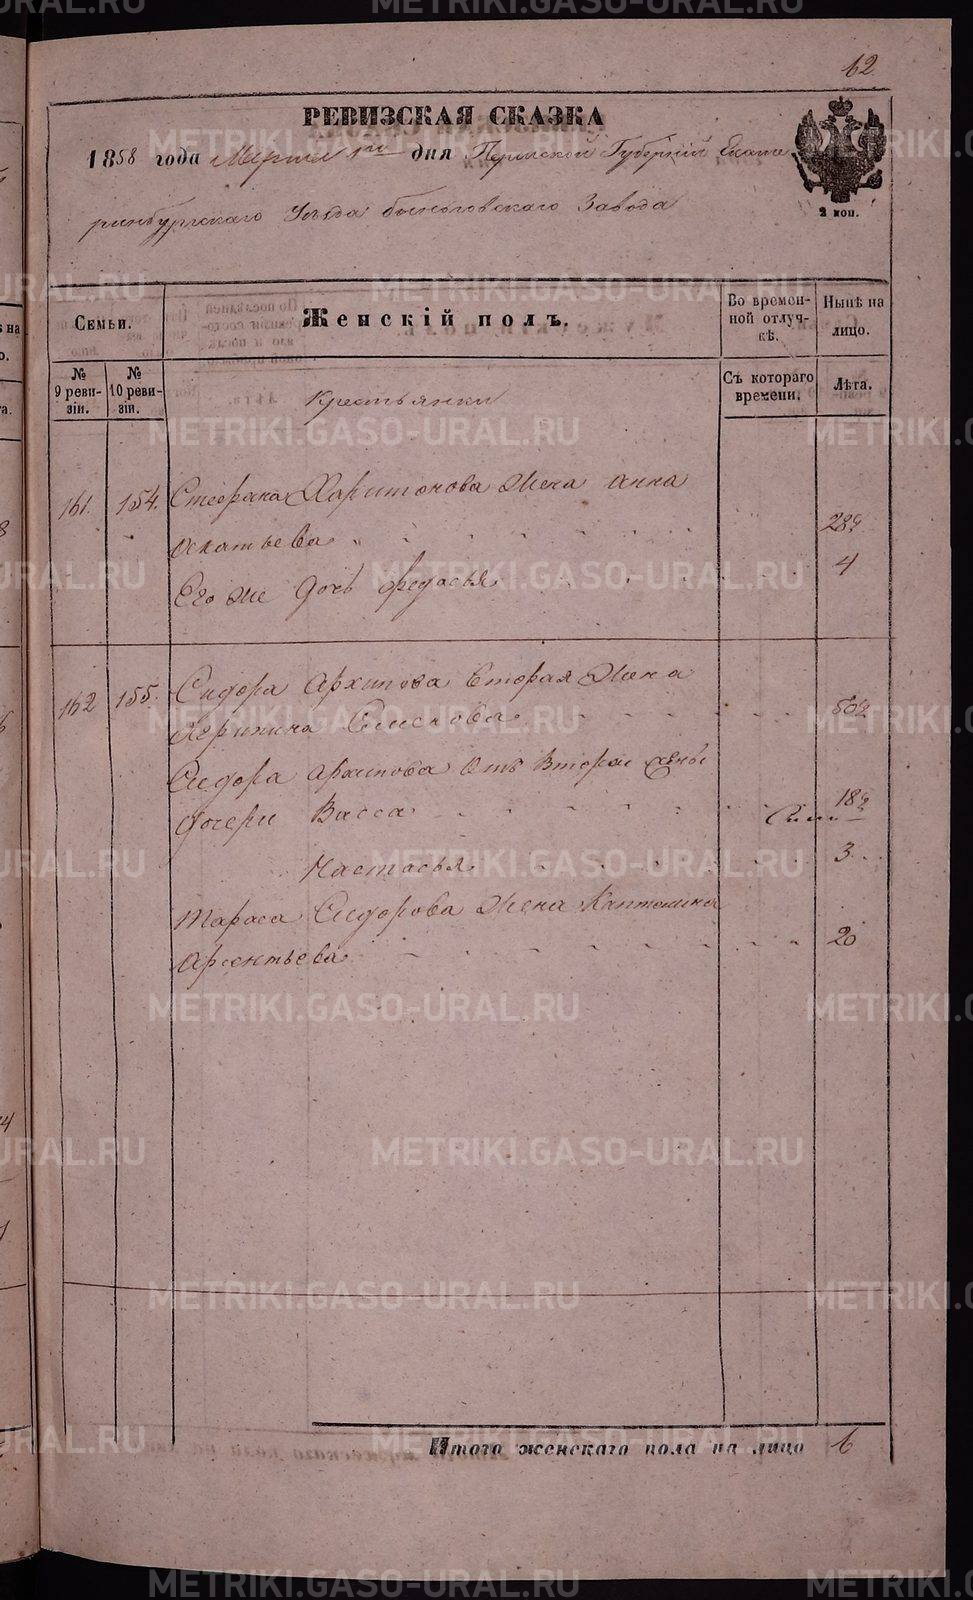 62
РЕВИЗСКАЯ СКАЗКА
1858 года Марта 1го дня Пермской Губерніи Екате
ринбургскаго Уѣзда Завода
2 коп.
Семьи.
Женскій полъ.
Во времен-
ной отлуч-
кѣ.
Нынѣ на
лицо.
№
9 реви-
зіи.
№
10 реви-
зіи.
Съ котораго
времени.
Лѣта.
Крестьянки
161. 154. Стефана Харитонова Жена Анна
28
Его же дочь Федосья 4
162 155. Сидора Архипова вторая Жена
50
Сидора Архипова отъ второй жены
дочери Васса 18
Настасья 3
Тараса Сидорова Жена Каптолина
20
Итого женскаго пола на лицо 6
METRIKI.GASO-URAL.RU